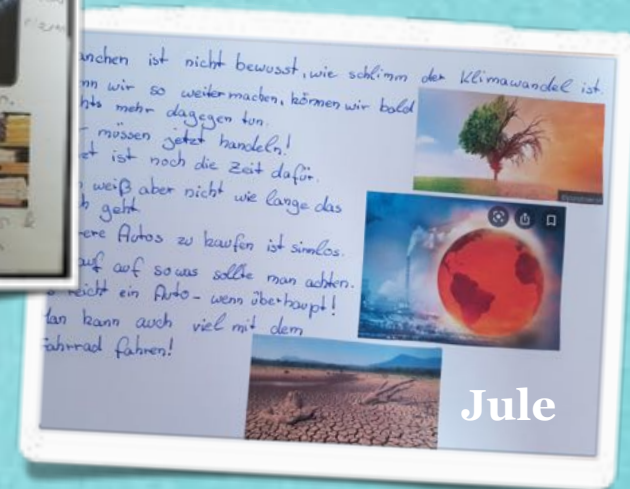 ist nicht bewusst, wie schlimm der Klimawandel ist.
wir so weitermachen, können wir bald
mehr dagegen tun.
müssen jetzt handeln!
ist noch die Zeit dafür.
weiß aber nicht wie lange das
geht
Autos zu kaufen ist sinnlos.
auf sowas sollte man achten.
reicht ein Auto - wenn überhaupt!
kann auch viel mit dem
Fahrrad fahren!
Jule